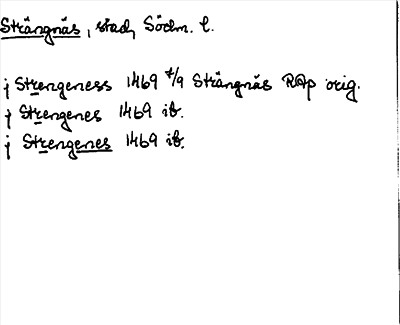 Strängnäs, stad, Södm. l.
j Strengeness 1469 7/9 Strängnäs RAp orig.
j Strengenes 1469 ib.
j Strengenes 1469 ib.